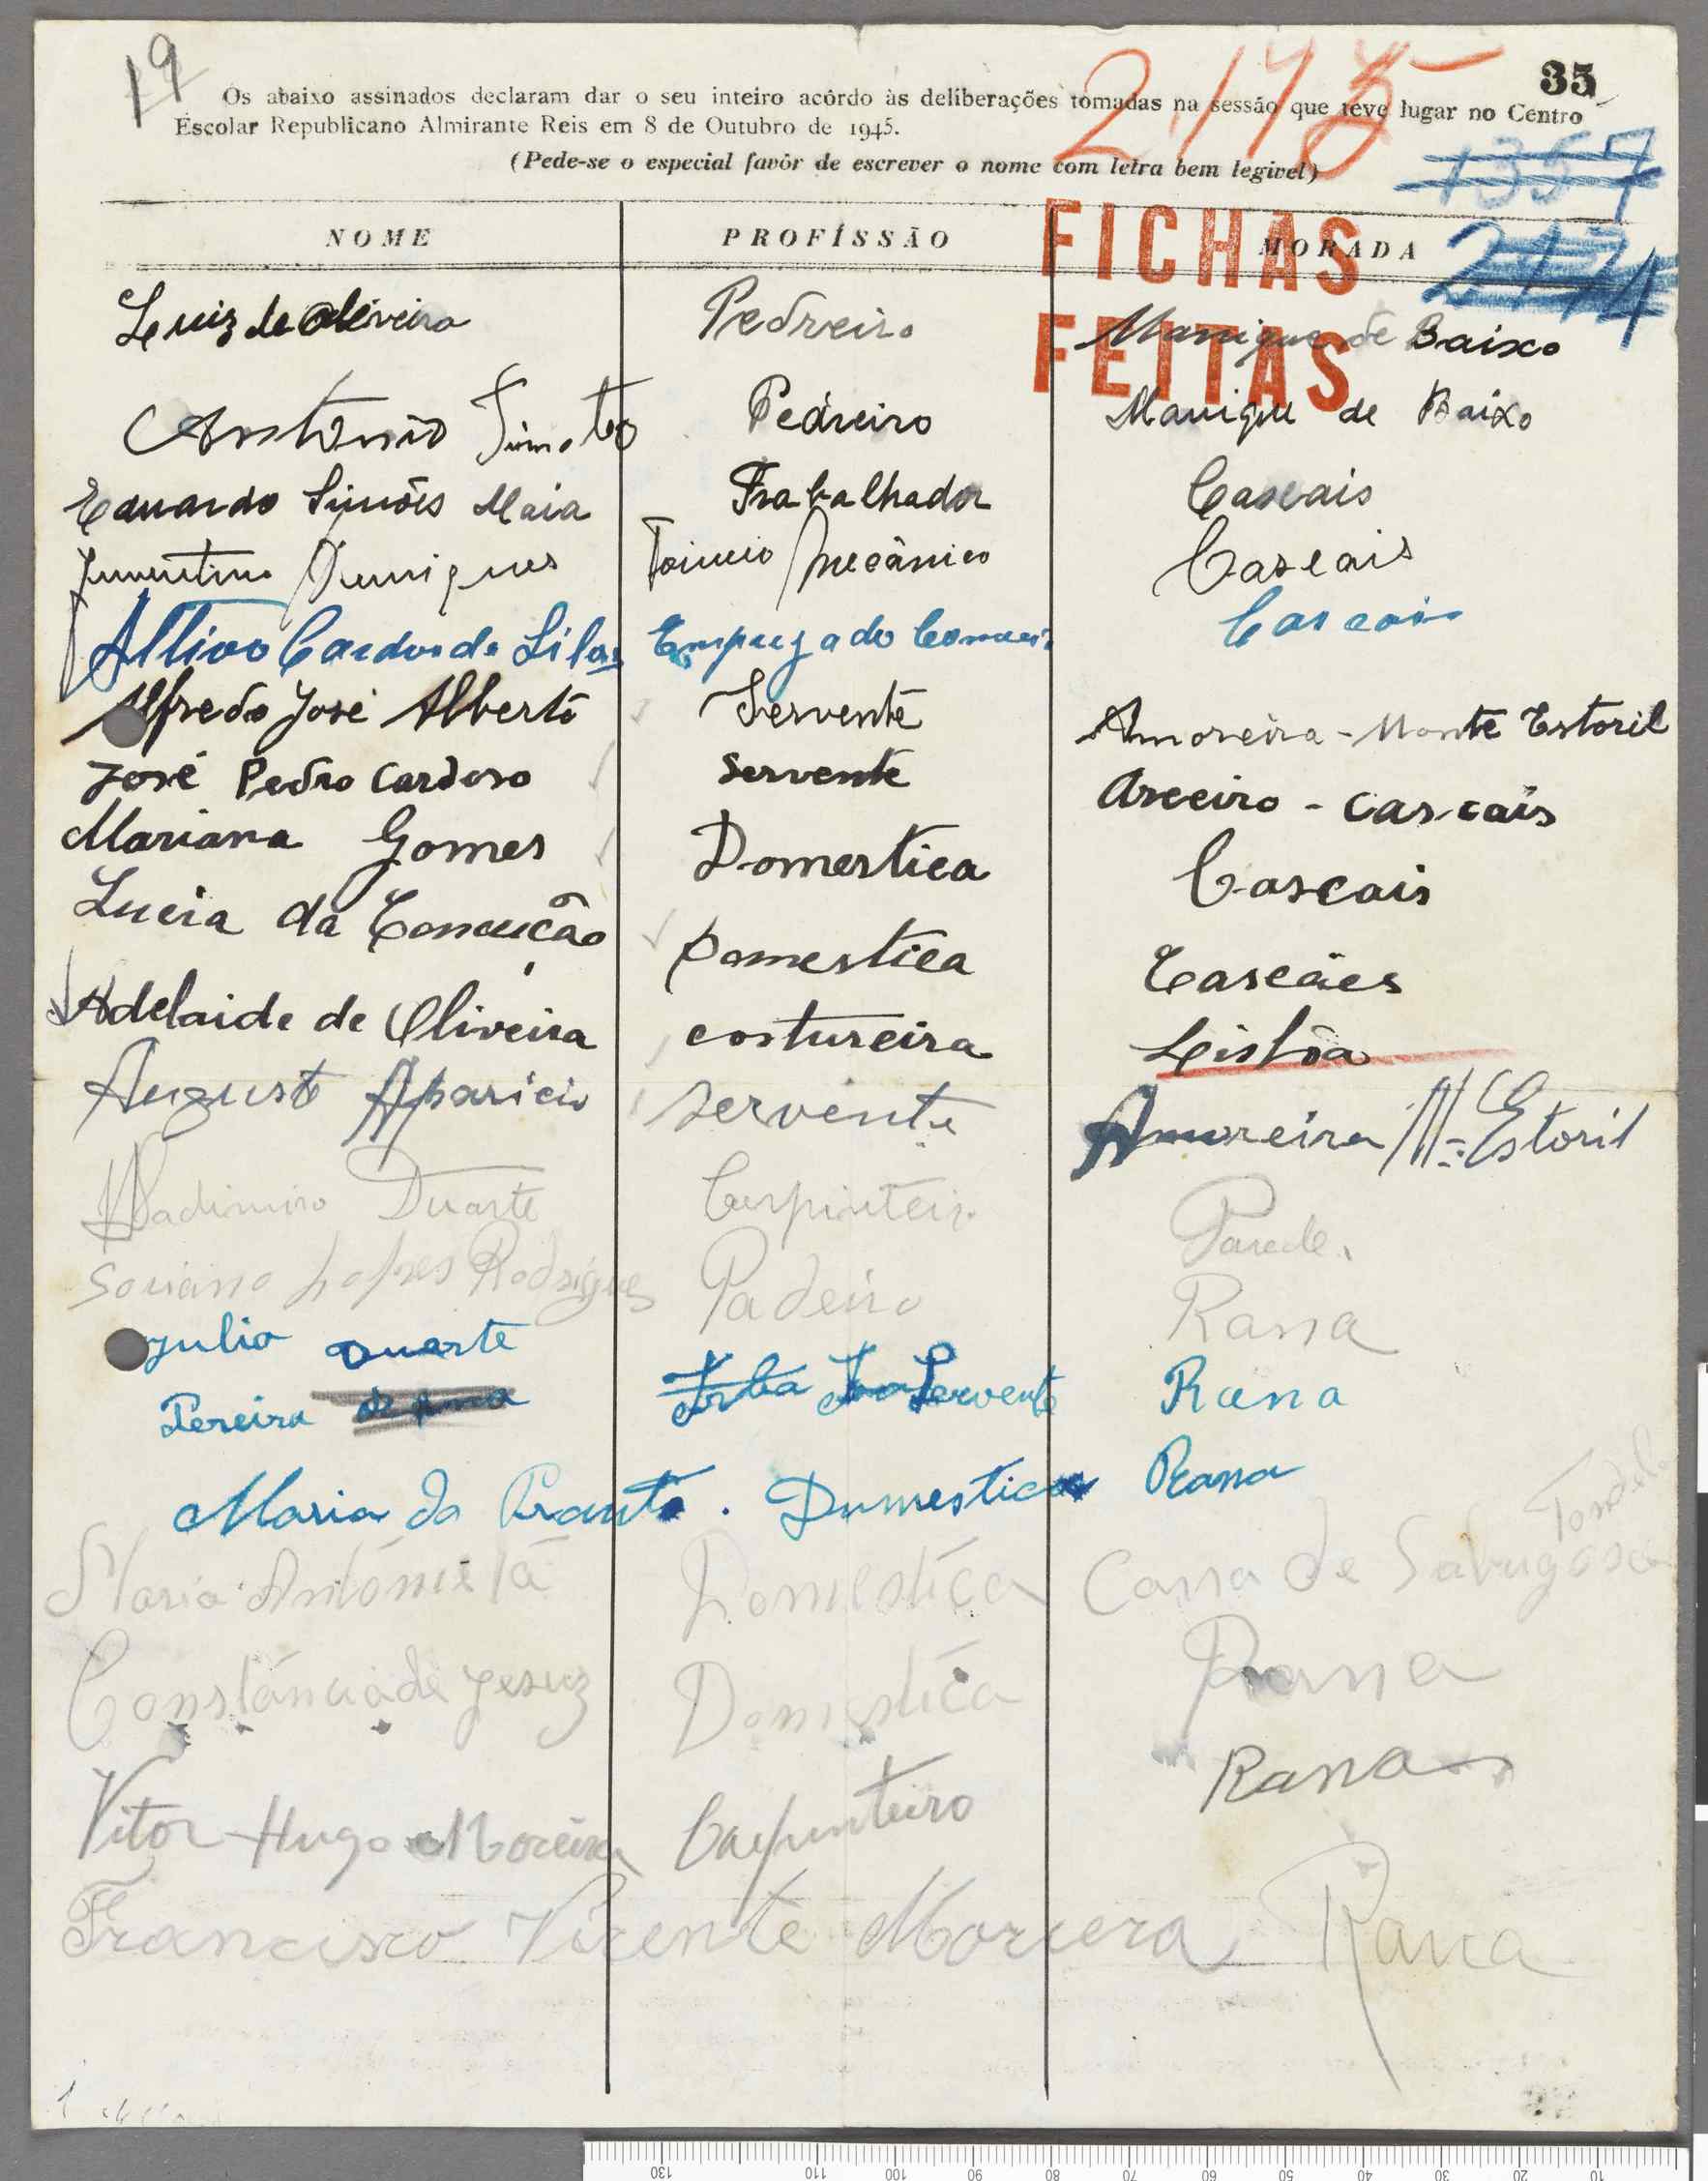 19
35
2175
Os abaixo assinados declaram dar o seu inteiro acôrdo às deliberações tomadas na sessão que teve lugar no Centro
Escolar Republicano Almirante Reis em 8 de Outubro de 1945.
(Pede-se o especial favôr de escrever o nome com letra bem legivel)
1357
2174
NOME PROFÍSSÃO MORADA
FICHAS
FEITAS
Luiz de Oliveira Pedreiro Manique de Baixo
António Timoteo Pedreiro Manique de Baixo
Eduardo Simões Maia Trabalhador Cascais
Juventino Domingues Torneiro Mecânico Cascais
Altivo Cardoso da Silva Empregado Comerci Cascais
Alfredo José Alberto Servente Amoreira - Monte Estoril
José Pedro Cardoso Servente Areeiro - Cascais
Mariana Gomes Domestica Cascais
Lucia da Conceicão Domestica Cascães
Adelaide de Oliveira costureira Lisbôa
Augusto Aparicio Servente Amoreira M. Estoril
Wladimiro Duarte Carpinteiro Parede.
Soriano Lopes Rodrigues Padeiro Rana
Julio Duarte
Pereira Servente Rana
Maria do Pranto. Dumestica Rana
Tondela
Maria Antónieta Doméstiça Cana de Sabugosa
Constância de Jesuz Doméstica Rana
Vitor Hugo Moreira Carpinteiro Rana
Francisco Vicente Moreira Rana